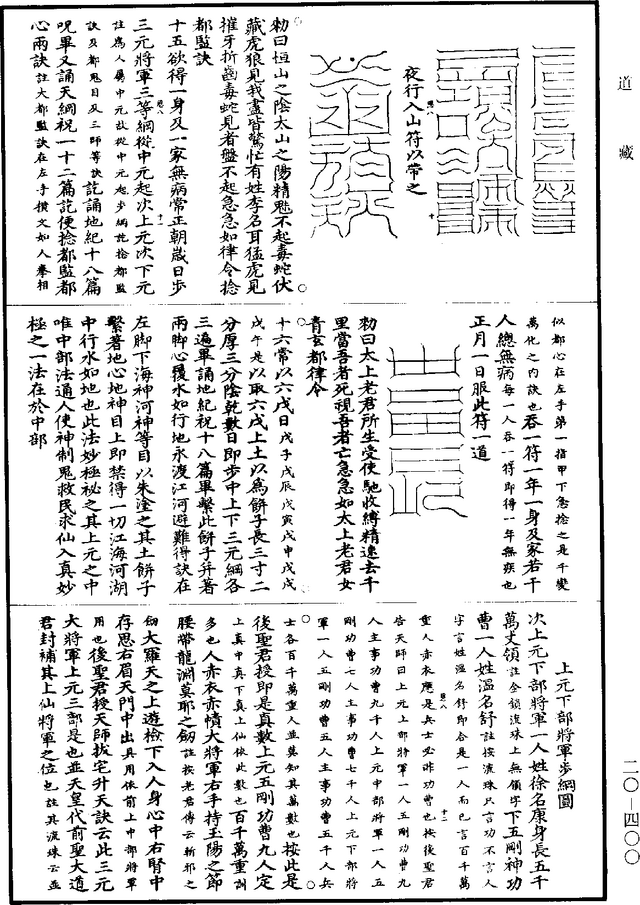 道藏
夜行入山符以帶之
勑曰恒山之陰太山之陽精魁不起毒蛇伏
藏虎狼見我盡皆驚忙有姓李名耳猛虎見
摧牙折齒毒蛇見者盤不起急急如律令捻
都監訣
十五欲得一身及一家無病常正朝歲日步
三元將軍三等綱從中元起次上元次下元
註為人屬中元故從中元起步綱訖捻都監
訣及都魁目及三師等訣訖誦地紀十八篇
呪畢又誦天綱祝一十二篇訖便捻都監都
心兩訣註大都監訣在左手橫文如人拳相
似都心在左手第一指甲下急捻之是千變
萬化之內訣也吞一符一年一身及家若千
人總無病每一人吞一符即得一年無疾也
正月一日服此符一道
勑曰太上老君所生受使馳收縛精遶去千
里當吾者死視吾者亡急急如太上老君女
青玄都律令
十六常以六戊日戊子戊辰戊寅戊申戊戌
戊午是以取六戊上土以為餅子長三寸二
分厚三分陰乾數日即步中上下三元綱各
三遍畢誦地紀祝十八篇畢繫此餅子并著
兩脚心覆水如行地永渡江河避難得訣在
左脚下海神河神等目以朱塗之其土餅子
繫著地心地神目上即禁得一切江海河湖
中行水如地也此法妙極祕之其上元之中
唯中部法通人使神制鬼救民求仙入真妙
極之一法在於中部
上元下部將軍步綱圖
次上元下部將軍一人姓徐名康身長五千
萬丈領註金鎖流珠上無領字下五剛神功
曹一人姓溫名舒註按流珠只言功不言人
字言姓溫名舒即合是一人而已言百千萬
重人赤衣應是兵士必非功曹也按後聖君
告天師曰上元上部將軍一人五剛功曹九
人主事功曹九千人上元中部將軍一人五
剛功曹七人主事功曹七千人上元下部將
軍一人五剛功曹五人主事功曹五千人兵
士各百千萬重人並莫知其萬數也按此是
後聖君授即是真數上元五剛功曹九人定
上真中真下真上仙依此數也百千萬重訓
多也人赤衣赤幘大將軍右手持玉陽之節
腰帶龍淵莫耶之劒註按老君傳云斬邪之
劒大羅天之上遊檢下入人身心中右腎中
存思右眉天門中出具用依前上中部將軍
用也後聖君授天師拔宅升天訣云此三元
大將軍上元三部是也並天皇代前聖大道
君封補其上仙將軍之位也註其流珠云並
二〇—四〇〇